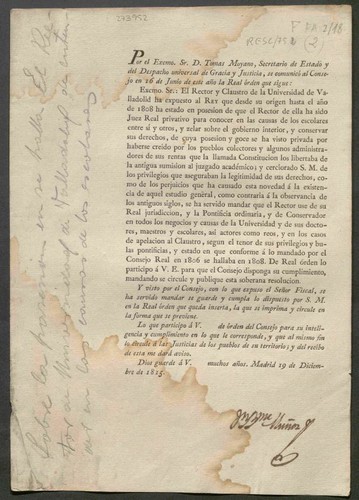 273952
RESC/75
(2)
Por el Excmo. Sr. D. Tomas Moyano, Secretario de Estado y
del Despacho universal de Gracia y Justicia, se comunicó al Conse-
jo en 16 de Junio de este año la Real órden que sigue:
Excmo. Sr.: El Rector y Claustro de la Universidad de Va-
lladolid ha expuesto al REY que desde su origen hasta el año
de 1808 ha estado en posesion de que el Rector de ella ha sido
Juez Real privativo para conocer en las causas de los escolares
entre sí y otros, y zelar sobre el gobierno interior, y conservar
sus derechos, de cuya posesion y goce se ha visto privado por
haberse creido por los pueblos colectores y algunos administra-
dores de sus rentas que la llamada Constitucion los libertaba de
la antigua sumision al juzgado académico; y cerciorado S. M. de
los privilegios que aseguraban la legitimidad de sus derechos, co-
mo de los perjuicios que ha causado esta novedad á la existencia
de aquel estudio general, como contraria á la observancia de
los antiguos siglos, se ha servido mandar que el Rector use de su
Real jurisdiccion, y la Pontificia ordinaria, y de Conservador
en todos los negocios y causas de la Universidad y de sus docto-
res, maestros y escolares, asi actores como reos, y en los casos
de apelacion al Claustro, segun el tenor de sus privilegios y bu-
las pontificias, y estado en que conforme á lo mandado por el
Consejo Real en 1806 se hallaba en 1808. De Real órden lo
participo á V. E. para que el Consejo disponga su cumplimiento,
mandando se circule y publique esta soberana resolucion.
Y visto por el Consejo, con lo que expuso el Señor Fiscal, se
ha servido mandar se guarde y cumpla lo dispuesto por S. M.
en la Real órden que queda inserta, la que se imprima y circule en
la forma que se previene.
Lo que participo á V. de órden del Consejo para su inteli-
gencia y cumplimiento en lo que le corresponde, y que al mismo fin
lo circule á las Justicias de los pueblos de su territorio; y del recibo
de esta me dará aviso.
Dios guarde á V. muchos años. Madrid 19 de Diciem-
bre de 1815.
Muñoz